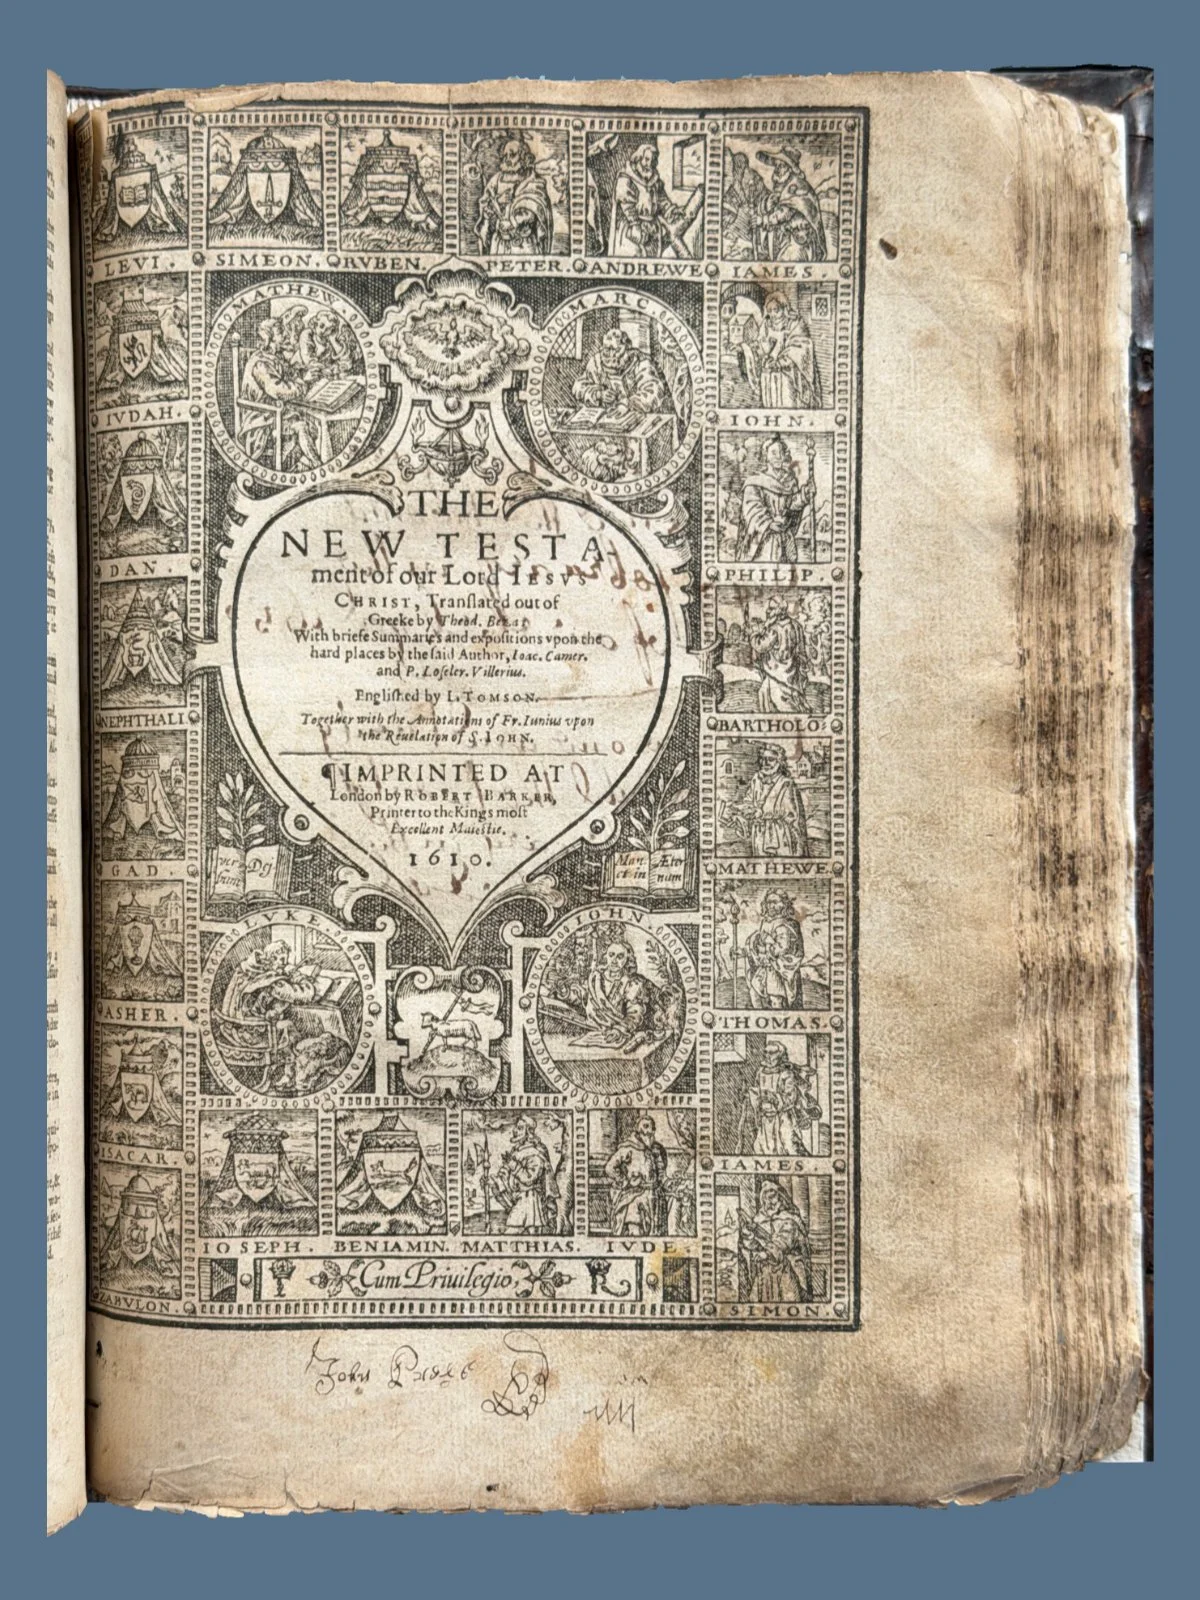 LEVI.
SIMEON.
RVBEN
PETER.
ANDREWE
IAMES.
MATHEW.
MARC.
IVDAH.
IOHN.
DAN.
PHILIP.
NEPHTHALI
BARTHOLO:
GAD.
MATHEWE
ASHER.
THOMAS.
ISACAR.
IAMES.
ZABVLON.
SIMON.
THE
NEW TESTA-
ment of our Lord IESVS
CHRIST, Translated out of
Greeke by Theod. Beza:
With briefe Summaries and expositions vpon the
hard places by the said Author, Ioac. Camer.
and P. Loseler. Villerius.
Englished by L. TOMSON.
Together with the Annotations of Fr. Iunius vpon
the Reuelation of S. IOHN.
¶IMPRINTED AT
London by ROBERT BARKER,
Printer to the Kings most
Excellent Maiestie.
1610.
ver
bum
Dej
Man
et in
Æter
num
LVKE.
IOHN
IOSEPH.
BENIAMIN.
MATTHIAS.
IVDE.
Cum Priuilegio,
R
John